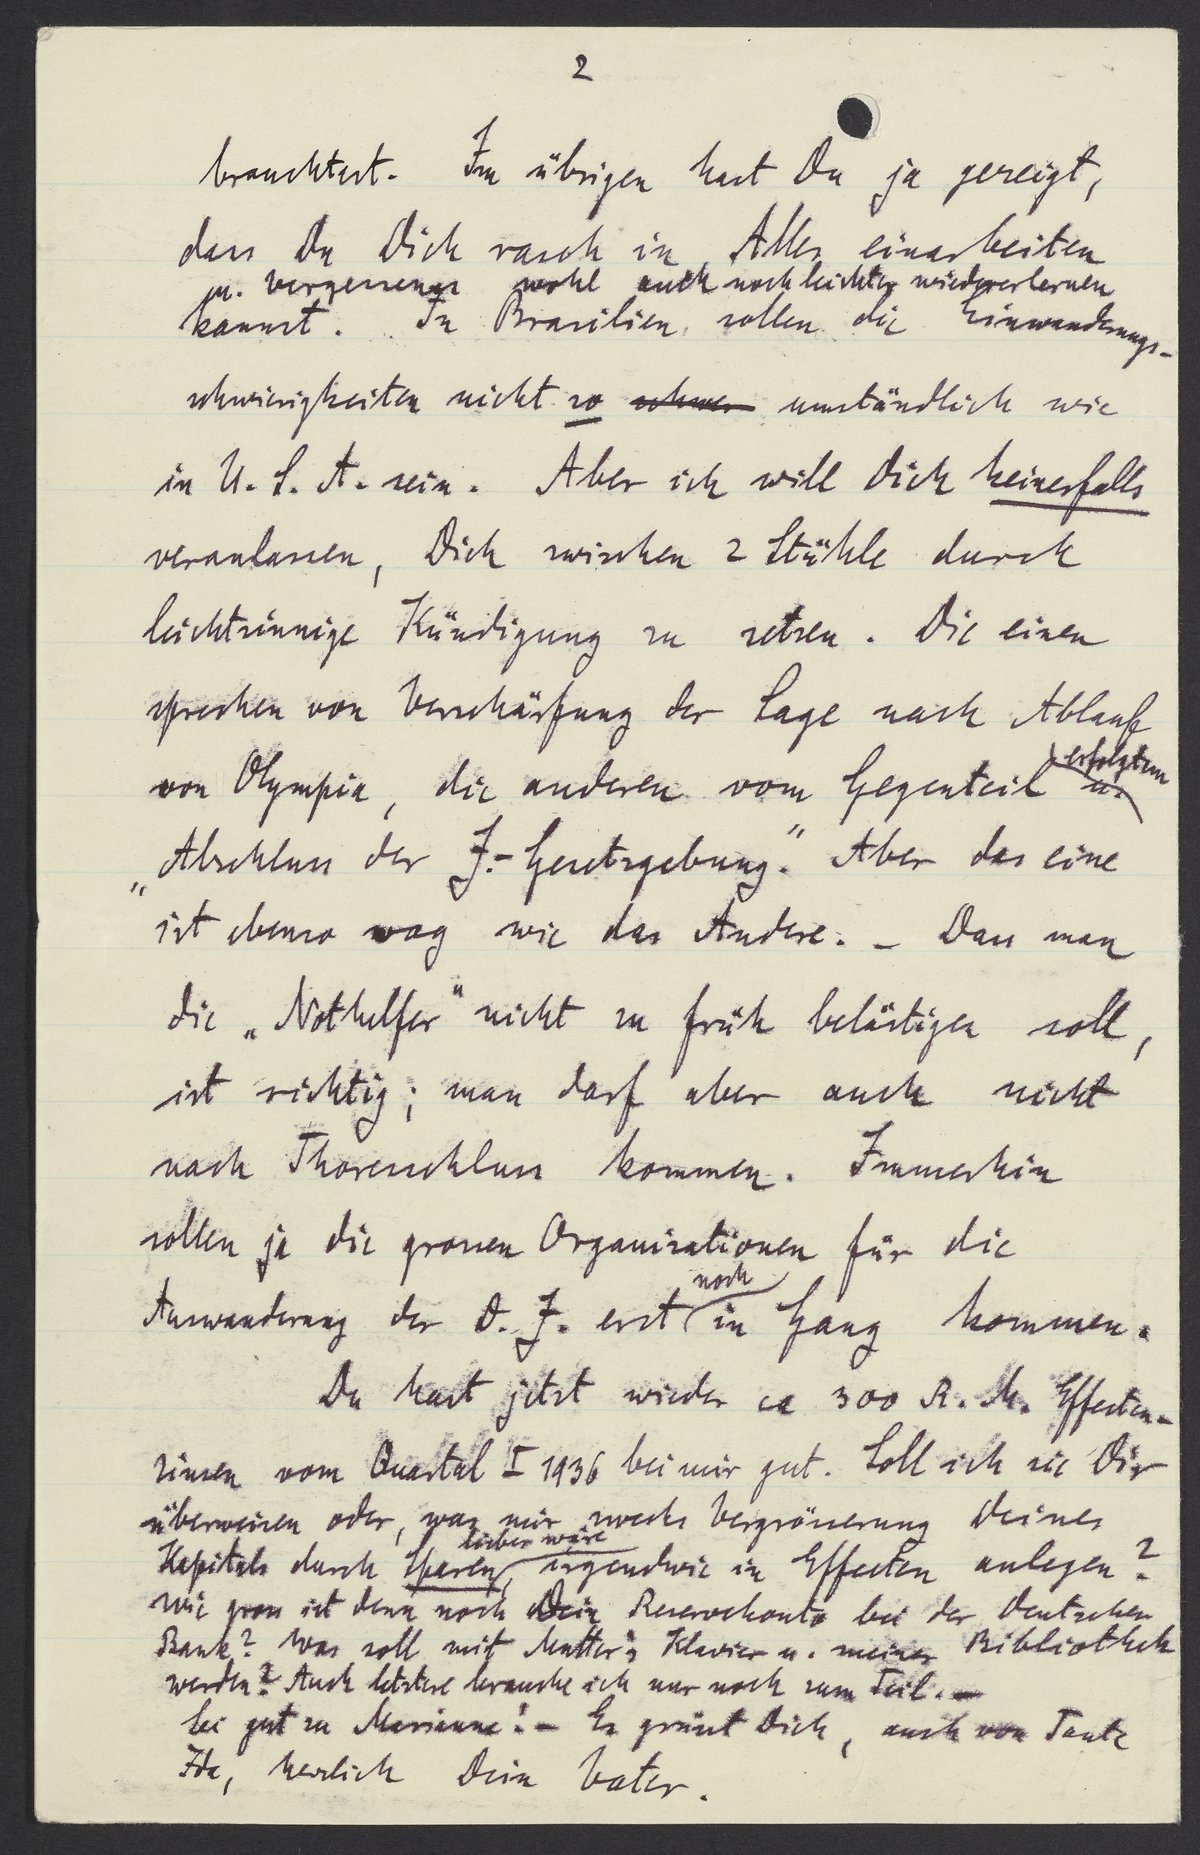 2
brauchtest. Im übrigen hast Du ja gezeigt,
dass Du Dich rasch in Alles einarbeiten
u. Vergessenes wohl auch noch leichter wiedererlernen
kannst. In Brasilien sollen die Einwanderungs-
schwierigkeiten nicht so schwer umständlich wie
in U.S.A. sein. Aber ich will Dich keinesfalls
veranlassen, Dich zwischen 2 Stühle durch
leichtsinnige Kündigung zu setzen. Die einen
sprechen von Verschärfung der Lage nach Ablauf
von Olympia, die anderen vom Gegenteil u.
erfolgtem
„Abschluss der J.-Gesetzgebung." Aber das eine
ist ebenso vag wie das Andere. – Dass man
die „Nothelfer" nicht zu früh belästigen soll,
ist richtig; man darf aber auch nicht
nach Thoresschluss kommen. Immerhin
sollen ja die grossen Organisationen für die
noch
Auswanderung der D. J. erst in Gang kommen.
Du hast jetzt wieder ca 300 R.M. Effecten-
zinsen vom Quartal I 1936 bei mir gut. Soll ich sie Dir
überweisen oder, was mir zwecks Vergrösserung Deines
lieber wäre
Kapitals durch Sparen, irgendwie in Effecten anlegen?
Wie gross ist denn noch Dein Reservekonto bei der Deutschen
Bank? Was soll mit Mutter's Klavier u. meiner Bibliothek
werden? Auch letztere brauche ich nur noch zum Teil. –
Sei gut zu Marianne! – Es grüsst Dich, auch von Tante
Ida, herzlich Dein Vater.